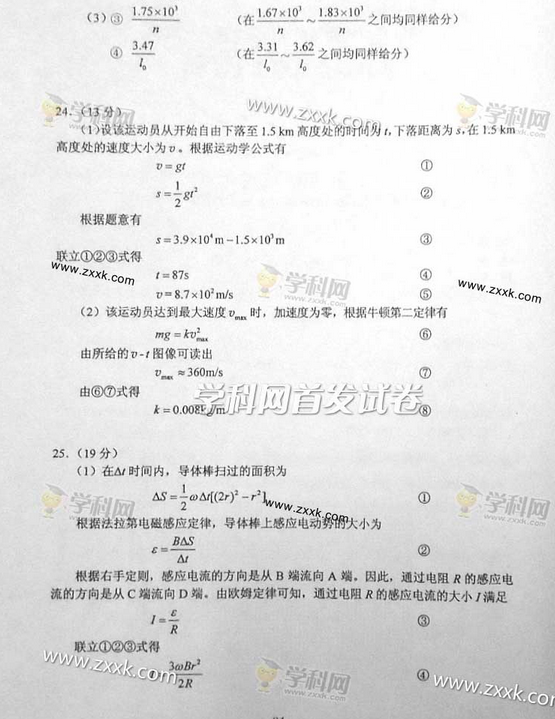 (3) ③ 1.75×10³/n (在 1.67×10³/n ~ 1.83×10³/n 之间均同样给分)
④ 3.47/l₀ (在 3.31/l₀ ~ 3.62/l₀ 之间均同样给分)
学科网
www.zxxk.com
学科网
24. (13 分)
(1)设该运动员从开始自由下落至 1.5 km 高度处的时间为 t, 下落距离为 s, 在 1.5 km
高度处的速度大小为 v 。根据运动学公式有
v = gt ①
s = 1/2 gt² ②
根据题意有
s = 3.9×10⁴ m − 1.5×10³ m ③
联立①②③式得
www.zxxk.com
t = 87s ④
学科网
www.zxxk.com
v = 8.7×10² m/s ⑤
(2) 该运动员达到最大速度 vmax 时，加速度为零，根据牛顿第二定律有
mg = kv²max ⑥
由所给的 v - t 图像可读出
vmax ≈ 360m/s ⑦
学科网首发试卷
由⑥⑦式得
k = 0.008kg/m ⑧
25. (19 分)
(1) 在Δt 时间内，导体棒扫过的面积为
ΔS = 1/2 ωΔt[(2r)² − r²] ①
学科网
www.zxxk.com
学科网
根据法拉第电磁感应定律，导体棒上感应电动势的大小为
ε = BΔS/Δt ②
根据右手定则，感应电流的方向是从 B 端流向 A 端。因此，通过电阻 R 的感应电
流的方向是从 C 端流向 D 端。由欧姆定律可知，通过电阻 R 的感应电流的大小 I 满足
I = ε/R ③
联立①②③式得
www.zxxk.com
3ωBr²/2R ④
学科网
www.zxxk.com